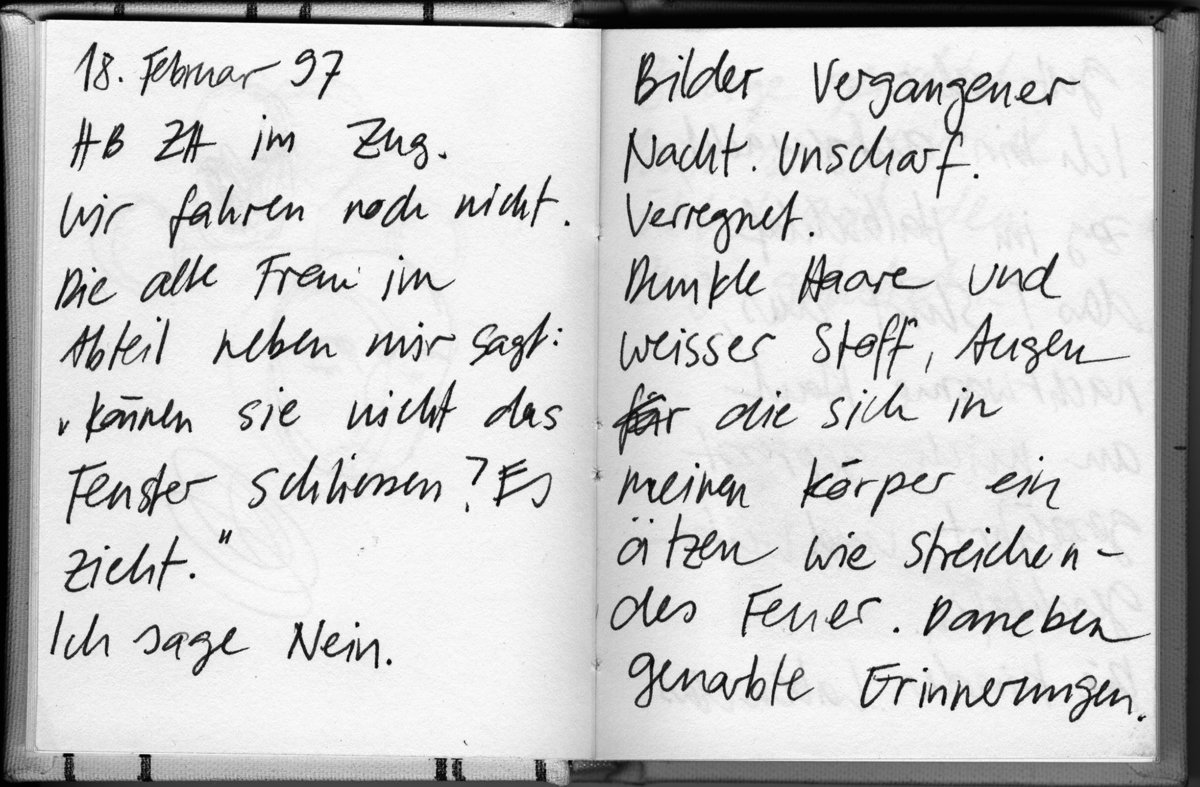 18. Februar 97
HB ZH im Zug.
Wir fahren noch nicht.
Die alte Frau im
Abteil neben mir sagt:
"können sie nicht das
Fenster schliessen? Es
zieht."
Ich sage Nein.
Bilder Vergangener
Nacht. Unscharf.
Verregnet.
Dunkle Haare und
weisser Stoff, Augen
die sich in
meinen Körper ein
ätzen wie streichen-
des Feuer. Daneben
genarbte Erinnerungen.